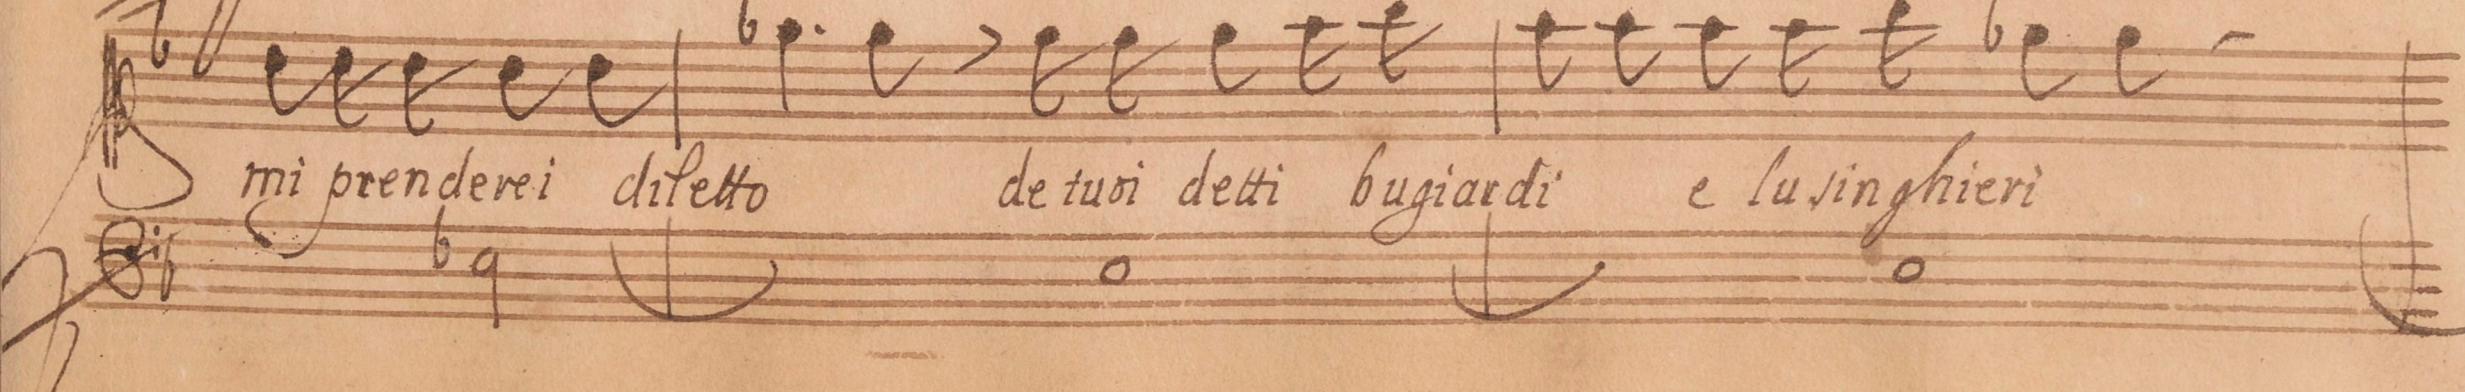 mi prenderei diletto de tuoi detti bugiardi e lusinghieri